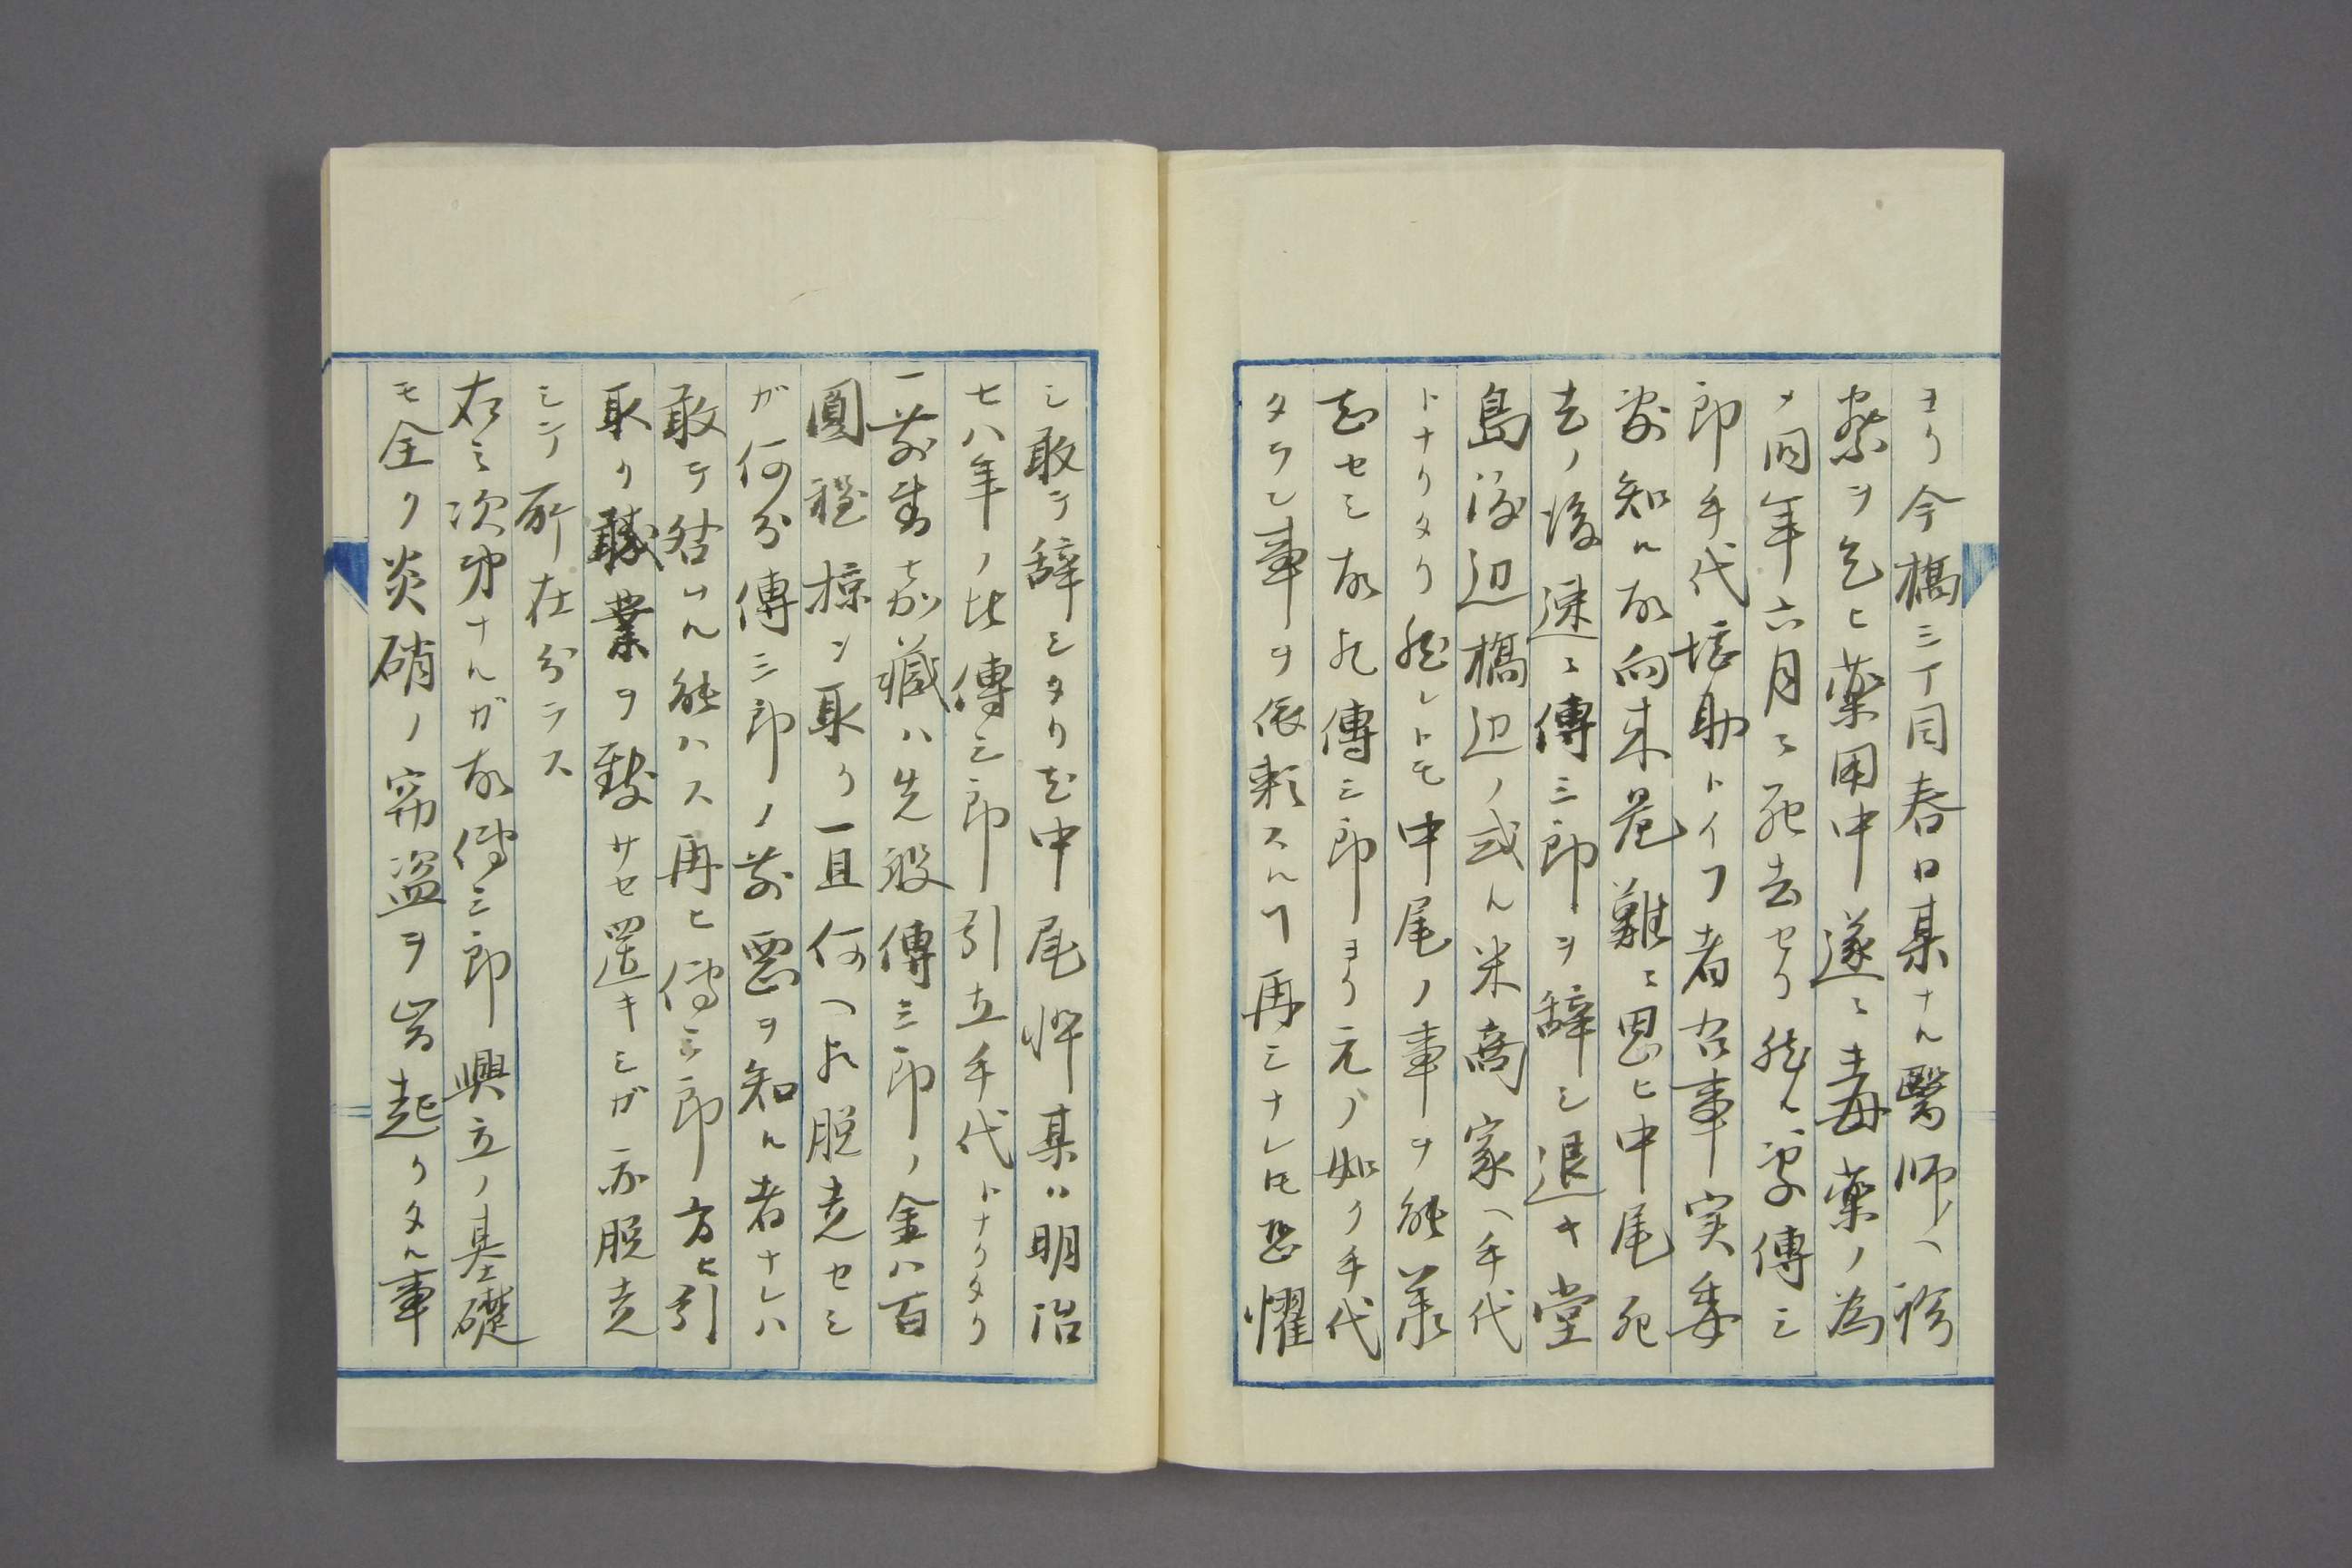 ヨリ今橋三丁目春日某ナル醫師ヘ診
察ヲ乞ヒ薬用中遂ニ毒薬ノ為
メ同年六月ニ死去セリ然ルニ藤傳三
郎手代堀助トイフ者右事実委
敷知ル故向来危難ニ思ヒ中尾死
去ノ後速ニ傳三郎ヲ辞シ退キ堂
島渡辺橋辺ノ或ル米商家ヘ手代
トナリタリ然レトモ中尾ノ事ヲ能承
知セシ故ニ傳三郎ヨリ元ノ如ク手代
タラン事ヲ依頼スルヿ再三ナレ𪜈恐懼
シ敢テ辞シタリ又中尾忰某ハ明治
七八年ノ比傳三郎引立手代トナリタリ
一前書嘉藏ハ先般傳三郎ノ金八百
圓程掠ソ取リ一旦何ヘカ脱走セシ
ガ何分傳三郎ノ前悪ヲ知ル者ナレハ
敢テ咎ル能ハス再ヒ傳三郎方ヒ引
取リ職業ヲ致サセ置キシガ亦脱走
シテ所在分ラス
右之次第ナルガ故傳三郎興立ノ基礎
モ全ク炎硝ノ窃盗ヨリ起リタル事